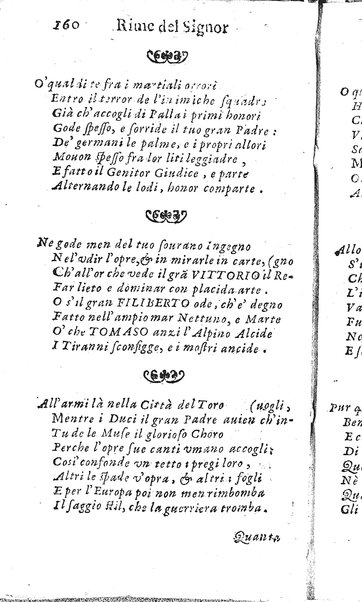 160 Rime del Signor
O' qual di te fra i martiali orrori
Entro il terror de l'inimiche squadre
Già ch'accogli di Palla i primi honori
Gode spesso, e sorride il tuo gran Padre:
De' germani le palme, e i propri allori
Mouon spesso fra lor liti leggiadre,
E fatto il Genitor Giudice, e parte
Alternando le lodi, honor comparte.
Ne gode men del tuo sourano Ingegno
Ne l'vdir l'opre, & in mirarle in carte, (gno
Ch'all'or che vede il grā VITTORIO il Re-
Far lieto e dominar con placida arte.
O s'il gran FILIBERTO ode, ch'e' degno
Fatto nell'ampio mar Nettuno, e Marte
O' che TOMASO anzi l'Alpino Alcide
I Tiranni sconfigge, e i mostri ancide.
All'armi là nella Città del Toro (uogli,
Mentre i Duci il gran Padre auien ch'in-
Tu de le Muse il glorioso Choro
Perche l'opre sue canti vmano accogli;
Così confonde vn tetto i pregi loro,
Altri le spade v'opra, & altri i fogli
E per l'Europa poi non men rimbomba
Il saggio stil, che la guerriera tromba.
Quanta